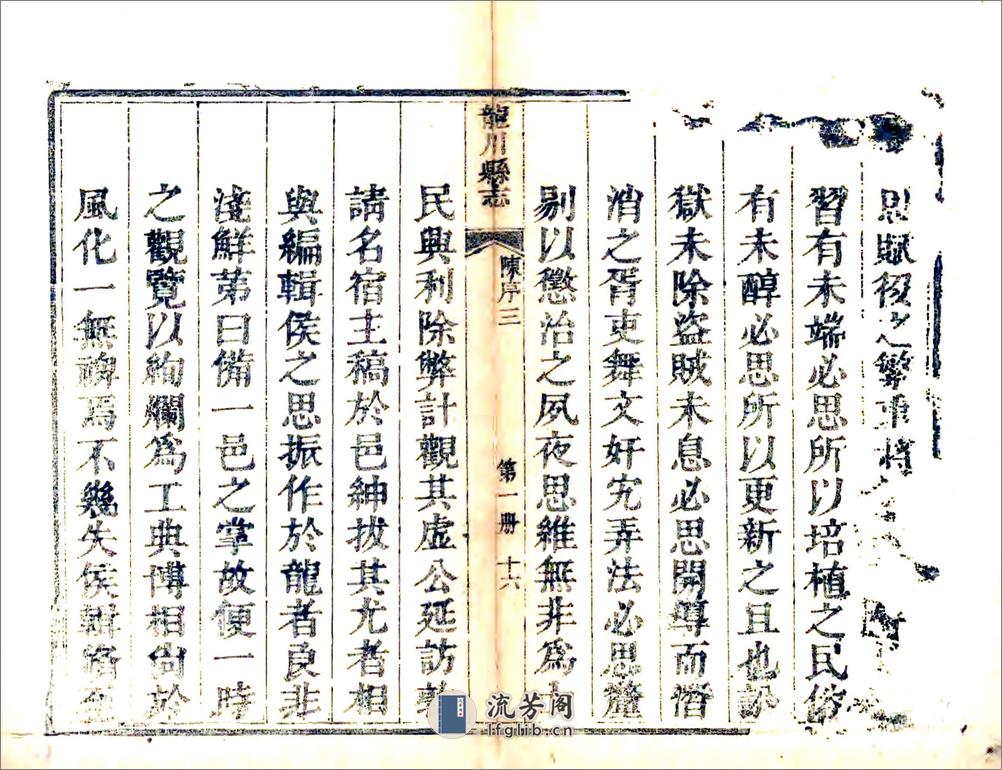 則賦役之繁重將
習有未端必思所以培植之民俗
有未醇必思所以更新之且也訟
獄未除盜賊未息必思開導而潛
消之胥吏舞文奸宄弄法必思釐
剔以懲治之夙夜思維無非爲
龍川縣志
陳序三
第一册 十六
民興利除弊計觀其虛公延訪敦
請名宿主稿於邑紳拔其尤者相
與編輯侯之思振作於龍者良非
淺鮮第曰備一邑之掌故便一時
之觀覽以絢爛爲工典博相尚於
風化一無裨焉不幾失侯輯
流芳阁
lfglib.cn